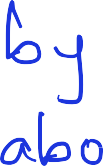 by
abo